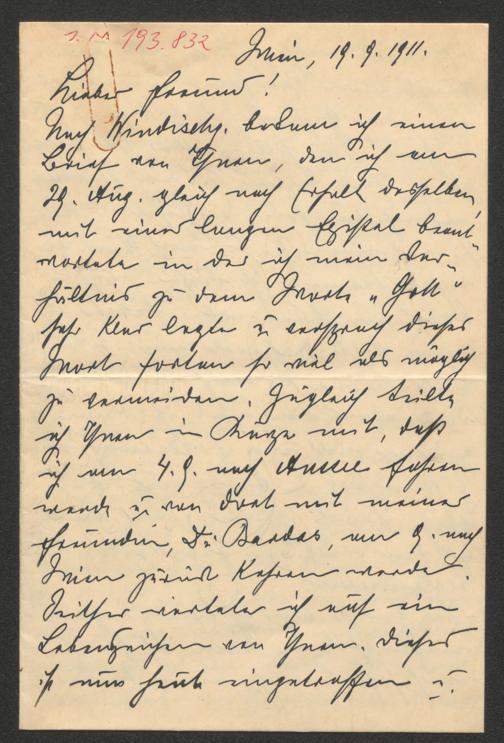 I. N. 193.832
Wien, 19. 9. 1911.
Lieber Freund!
Nach Windischg. bekam ich einen
Brief von Ihnen, den ich am
29. Aug. gleich nach Erhalt desselben
mit einer langen Epistel beant-
wortete in der ich mein Ver-
hältnis zu dem Worte „Gott"
sehr klar legte u versprach dieses
Wort fortan so viel als möglich
zu vermeiden. Zugleich teilte
ich Ihnen in Kürze mit, daß
ich am 4. 9. nach Aussee fahren
werde u von dort mit meiner
Freundin, Dr. Bardas, am 9. nach
Wien zurück kehren werde.
Seither wartete ich auf ein
Lebenszeichen von Ihnen. Dieses
ist nun heute eingetroffen u.